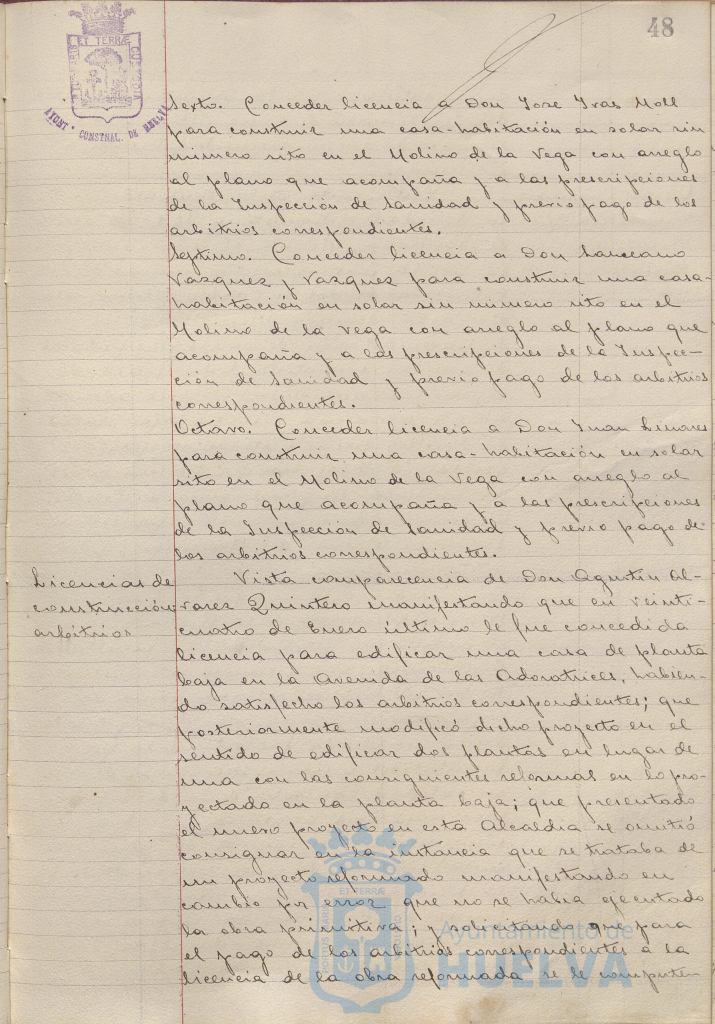 48
PORTUS MARIS ET TERRÆ CUSTODIA
AYUNT. CONSTNAL. DE HUELVA
Sexto. Conceder licencia a Don Jose Ivas Moll
para construir una casa-habitación en solar sin
número sito en el Molino de la Vega con arreglo
al plano que acompaña y a las prescripciones
de la Inspección de Sanidad y previo pago de los
arbitrios correspondientes.
Septimo. Conceder licencia a Don
Vazquez y Vazquez para construir una casa-
habitación en solar sin número sito en el
Molino de la Vega con arreglo al plano que
acompaña y a las prescripciones de la Inspec-
ción de Sanidad y previo pago de los arbitrios
correspondientes.
Octavo. Conceder licencia a Don Juan Linares
para construir una casa-habitación en solar
sito en el Molino de la Vega con arreglo al
plano que acompaña y a las prescripciones
de la Inspección de Sanidad y previo pago de
los arbitrios correspondientes.
Licencias de
construcción
arbitrios
Vista comparecencia de Don Agustin Al-
varez Quintero manifestando que en veinti-
cuatro de Enero último le fue concedida
licencia para edificar una casa de planta
baja en la Avenida de las Adoratrices, habien-
do satisfecho los arbitrios correspondientes; que
posteriormente modificó dicho proyecto en el
sentido de edificar dos plantas en lugar de
una con las consiguientes reformas en lo pro-
yectado en la planta baja; que presentado
el nuevo proyecto en esta Alcaldia se omitió
consignar en la instancia que se trataba de
un proyecto reformado manifestando en
cambio por error que no se habia ejecutado
la obra primitiva; y solicitando que para
el pago de los arbitrios correspondientes a la
licencia de la obra reformada se le computen
Ayuntamiento de
HUELVA